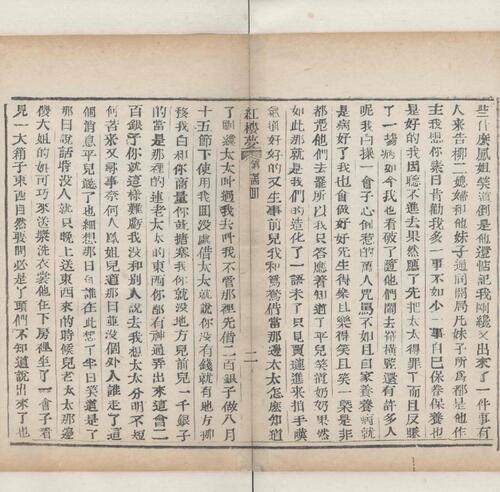 些什麼鳳姐笑道倒是他還惦記我剛纔又出來了一件事有
人來告柳二媳婦和他妹子通同開局凡妹子所爲都是他作
主我想你素日肯勸我多一事不如少一事自己保養保養也
是好的我因聽不進去果然應了先把太太得罪了而且反賺
了一塲病如今我也看破了隨他們鬧去罷橫豎還有許多人
呢我白操一會子心倒惹的萬人咒罵不如且自家養養病就
是病好了我也會做好好先生得樂且樂得笑且笑一槩是非
都憑他們去罷所以我只答應着知道了平兒笑道奶奶果然
如此那就是我們的造化了一語未了只見賈璉進來拍手嘆
氣道好好的又生事前兒我和鴛鴦借當那邊太太怎麼知道
紅樓夢 第 回 二
了剛纔太太叫過我去叫我不管那裡先借二百銀子做八月
十五節下使用我回沒處借太太就說你沒有錢就有地方挪
移我白和你商量你就搪塞我你就沒地方兒前兒一千銀子
的當是那裡的連老太太的東西你都有神通弄出來這會二
百銀子你就這樣難虧我沒和別人說去我想太太分明不短
何苦來又尋事奈何人鳳姐兒道那日並沒個外人誰走了這
個消息平兒聽了也細想那日有誰在此想了半日笑道是了
那日說話時沒人就只晚上送東西來的時候兒老太太那邊
傻大姐的娘可巧來送漿洗衣裳他在下房裡坐了一會子看
見一大箱子東西自然要問必是丫頭們不知道說出來了也